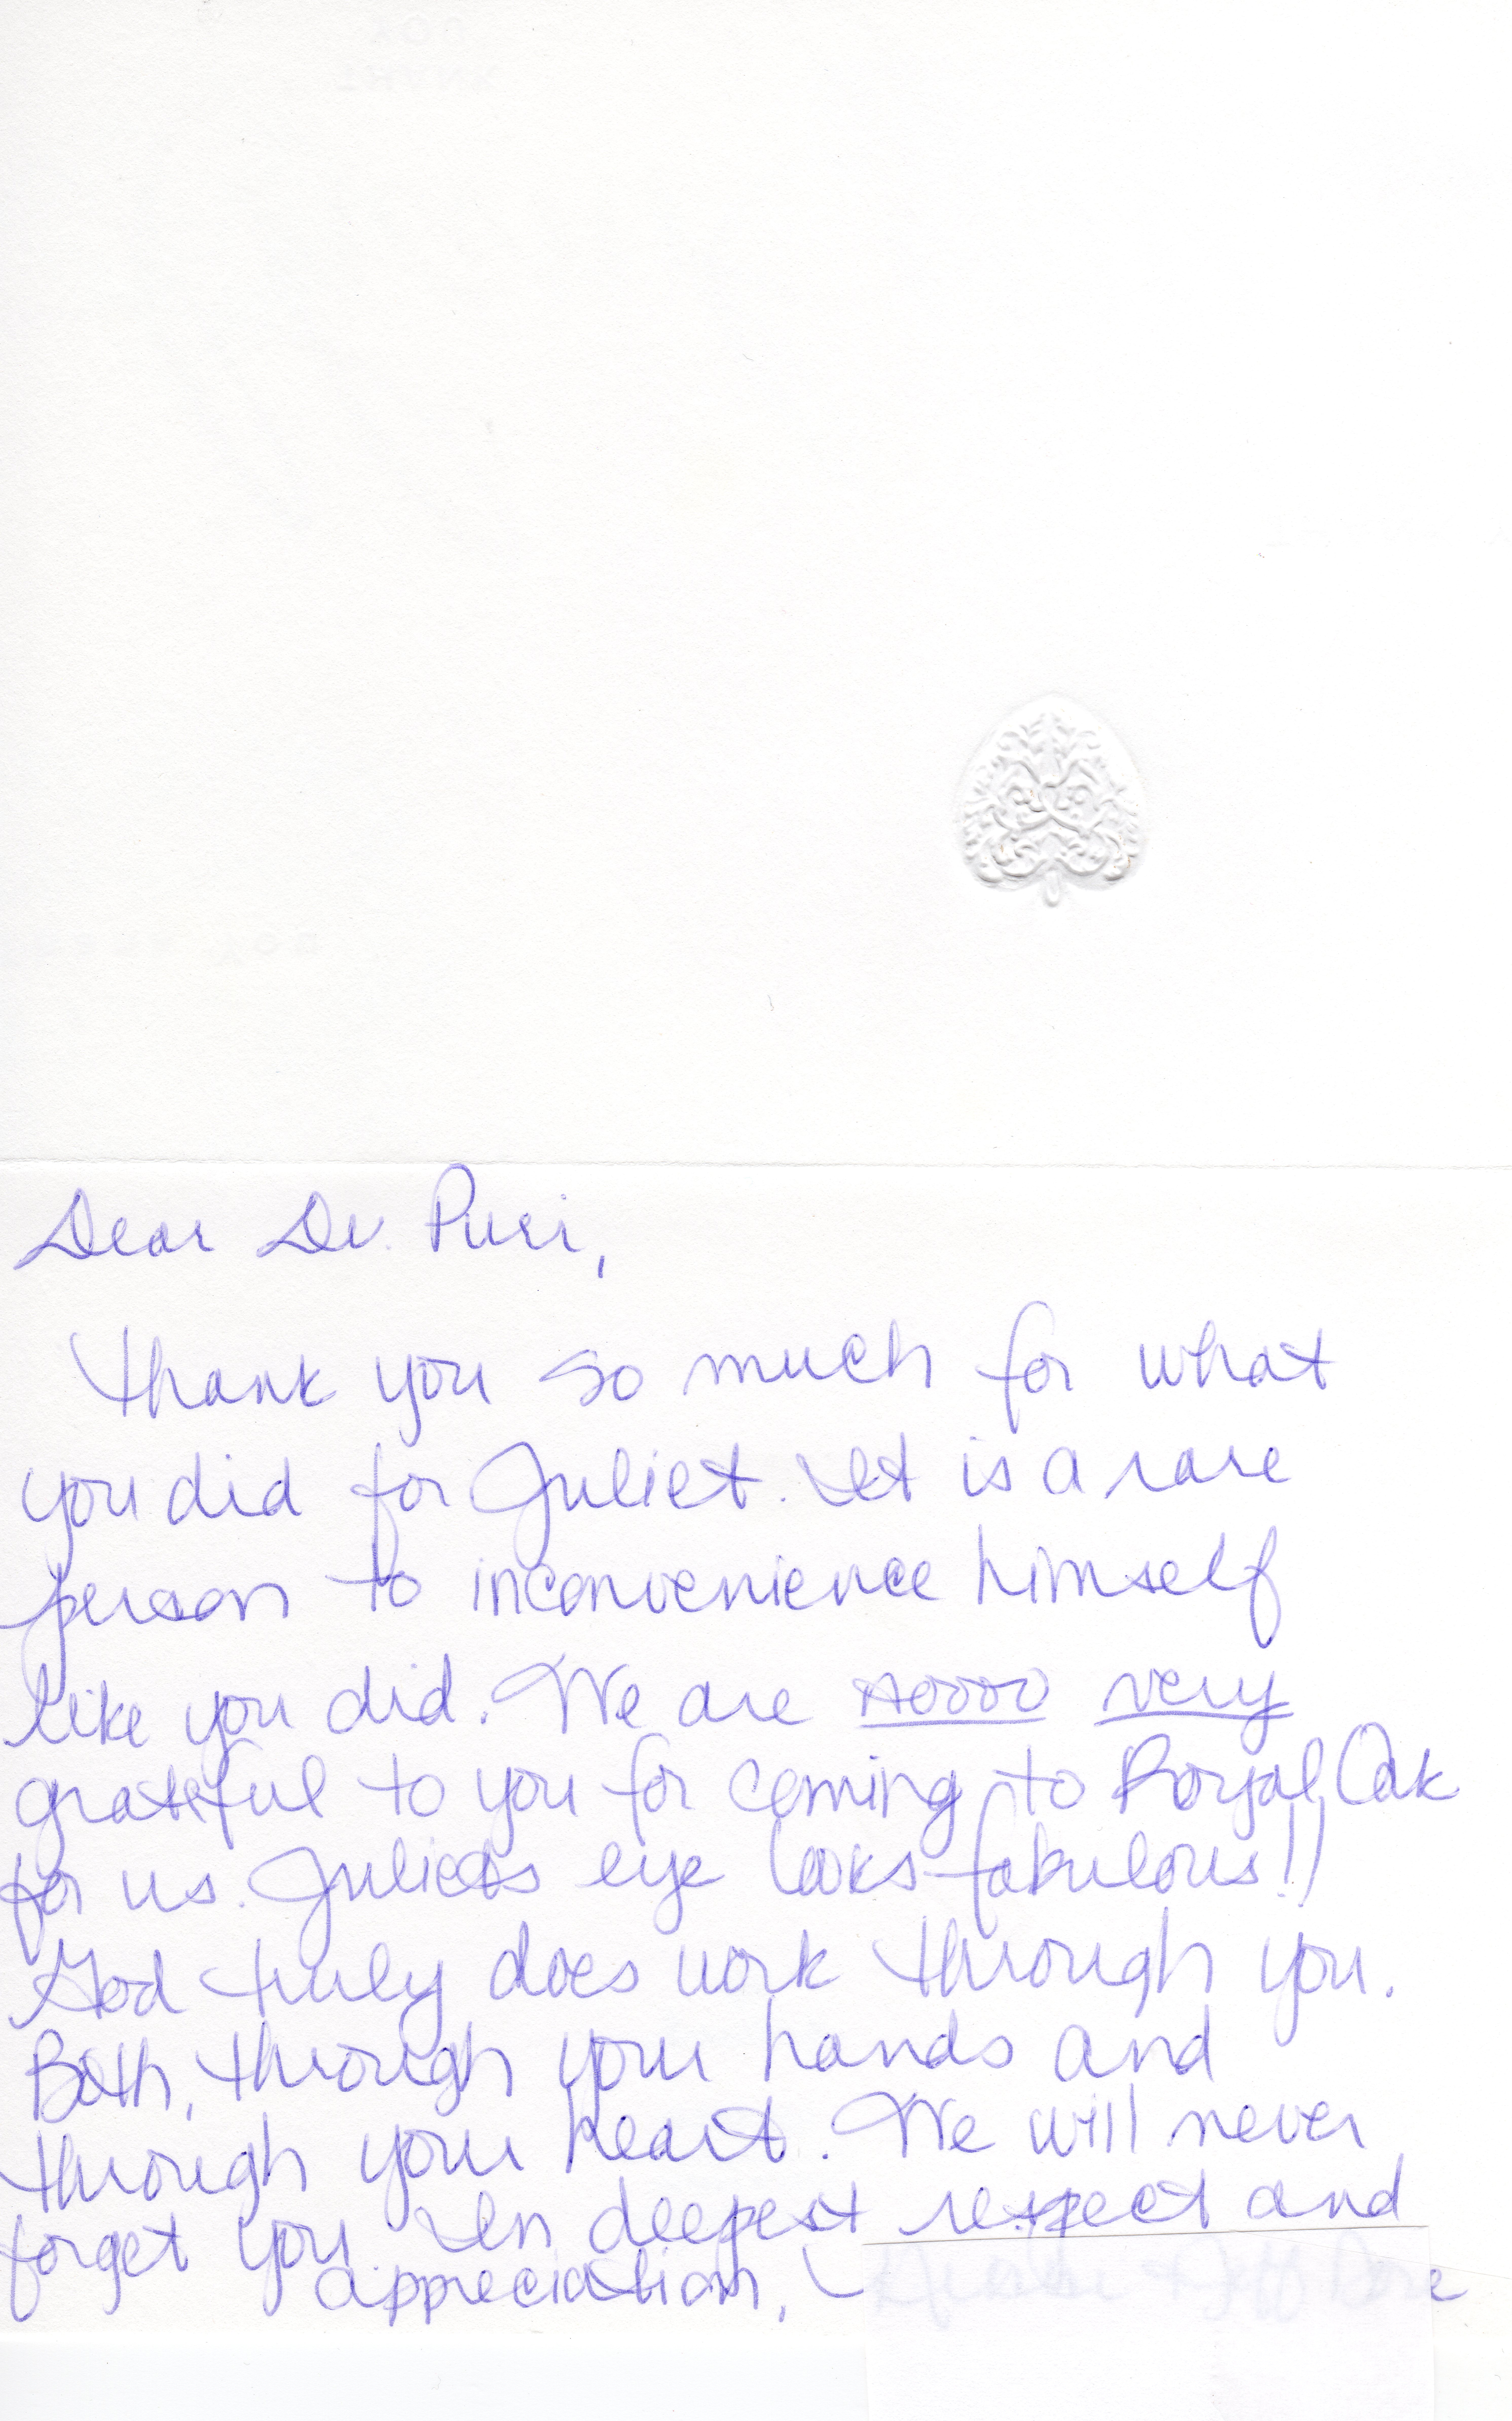 Dear Dr. Puri,
Thank you so much for what
you did for Juliet. It is a rare
person to inconvenience himself
like you did. We are soooo very
grateful to you for coming to Royal Oak
for us. Juliets eye looks fabulous!!
God truly does work through you.
Both, through your hands and
through your heart. We will never
forget you. In deepest respect and
appreciation,